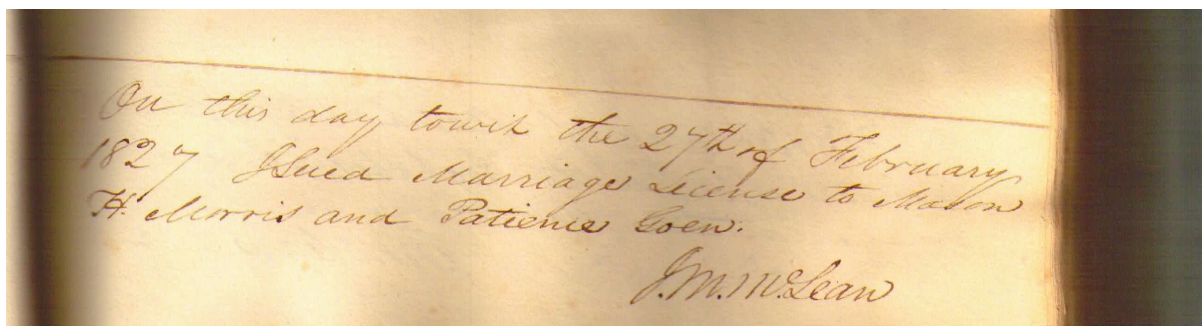 On this day towit the 27th of February
1827 Issued Marriage License to Mason
H. Morris and Patience Goen.
J. M. McLean